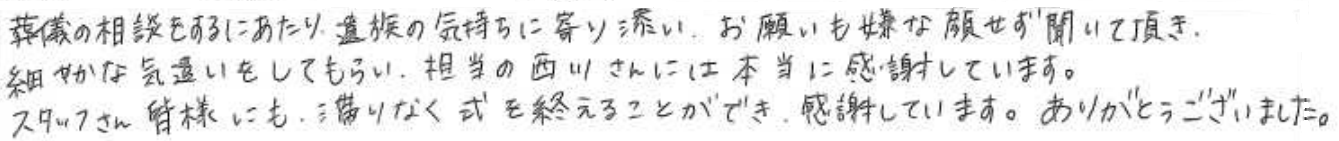 葬儀の相談をするにあたり、遺族の気持ちに寄り添い、お願いも嫌な顔せず聞いて頂き、
細やかな気遣いをしてもらい、担当の西川さんには本当に感謝しています。
スタッフさん皆様にも、滞りなく式を終えることができ、感謝しています。ありがとうございました。